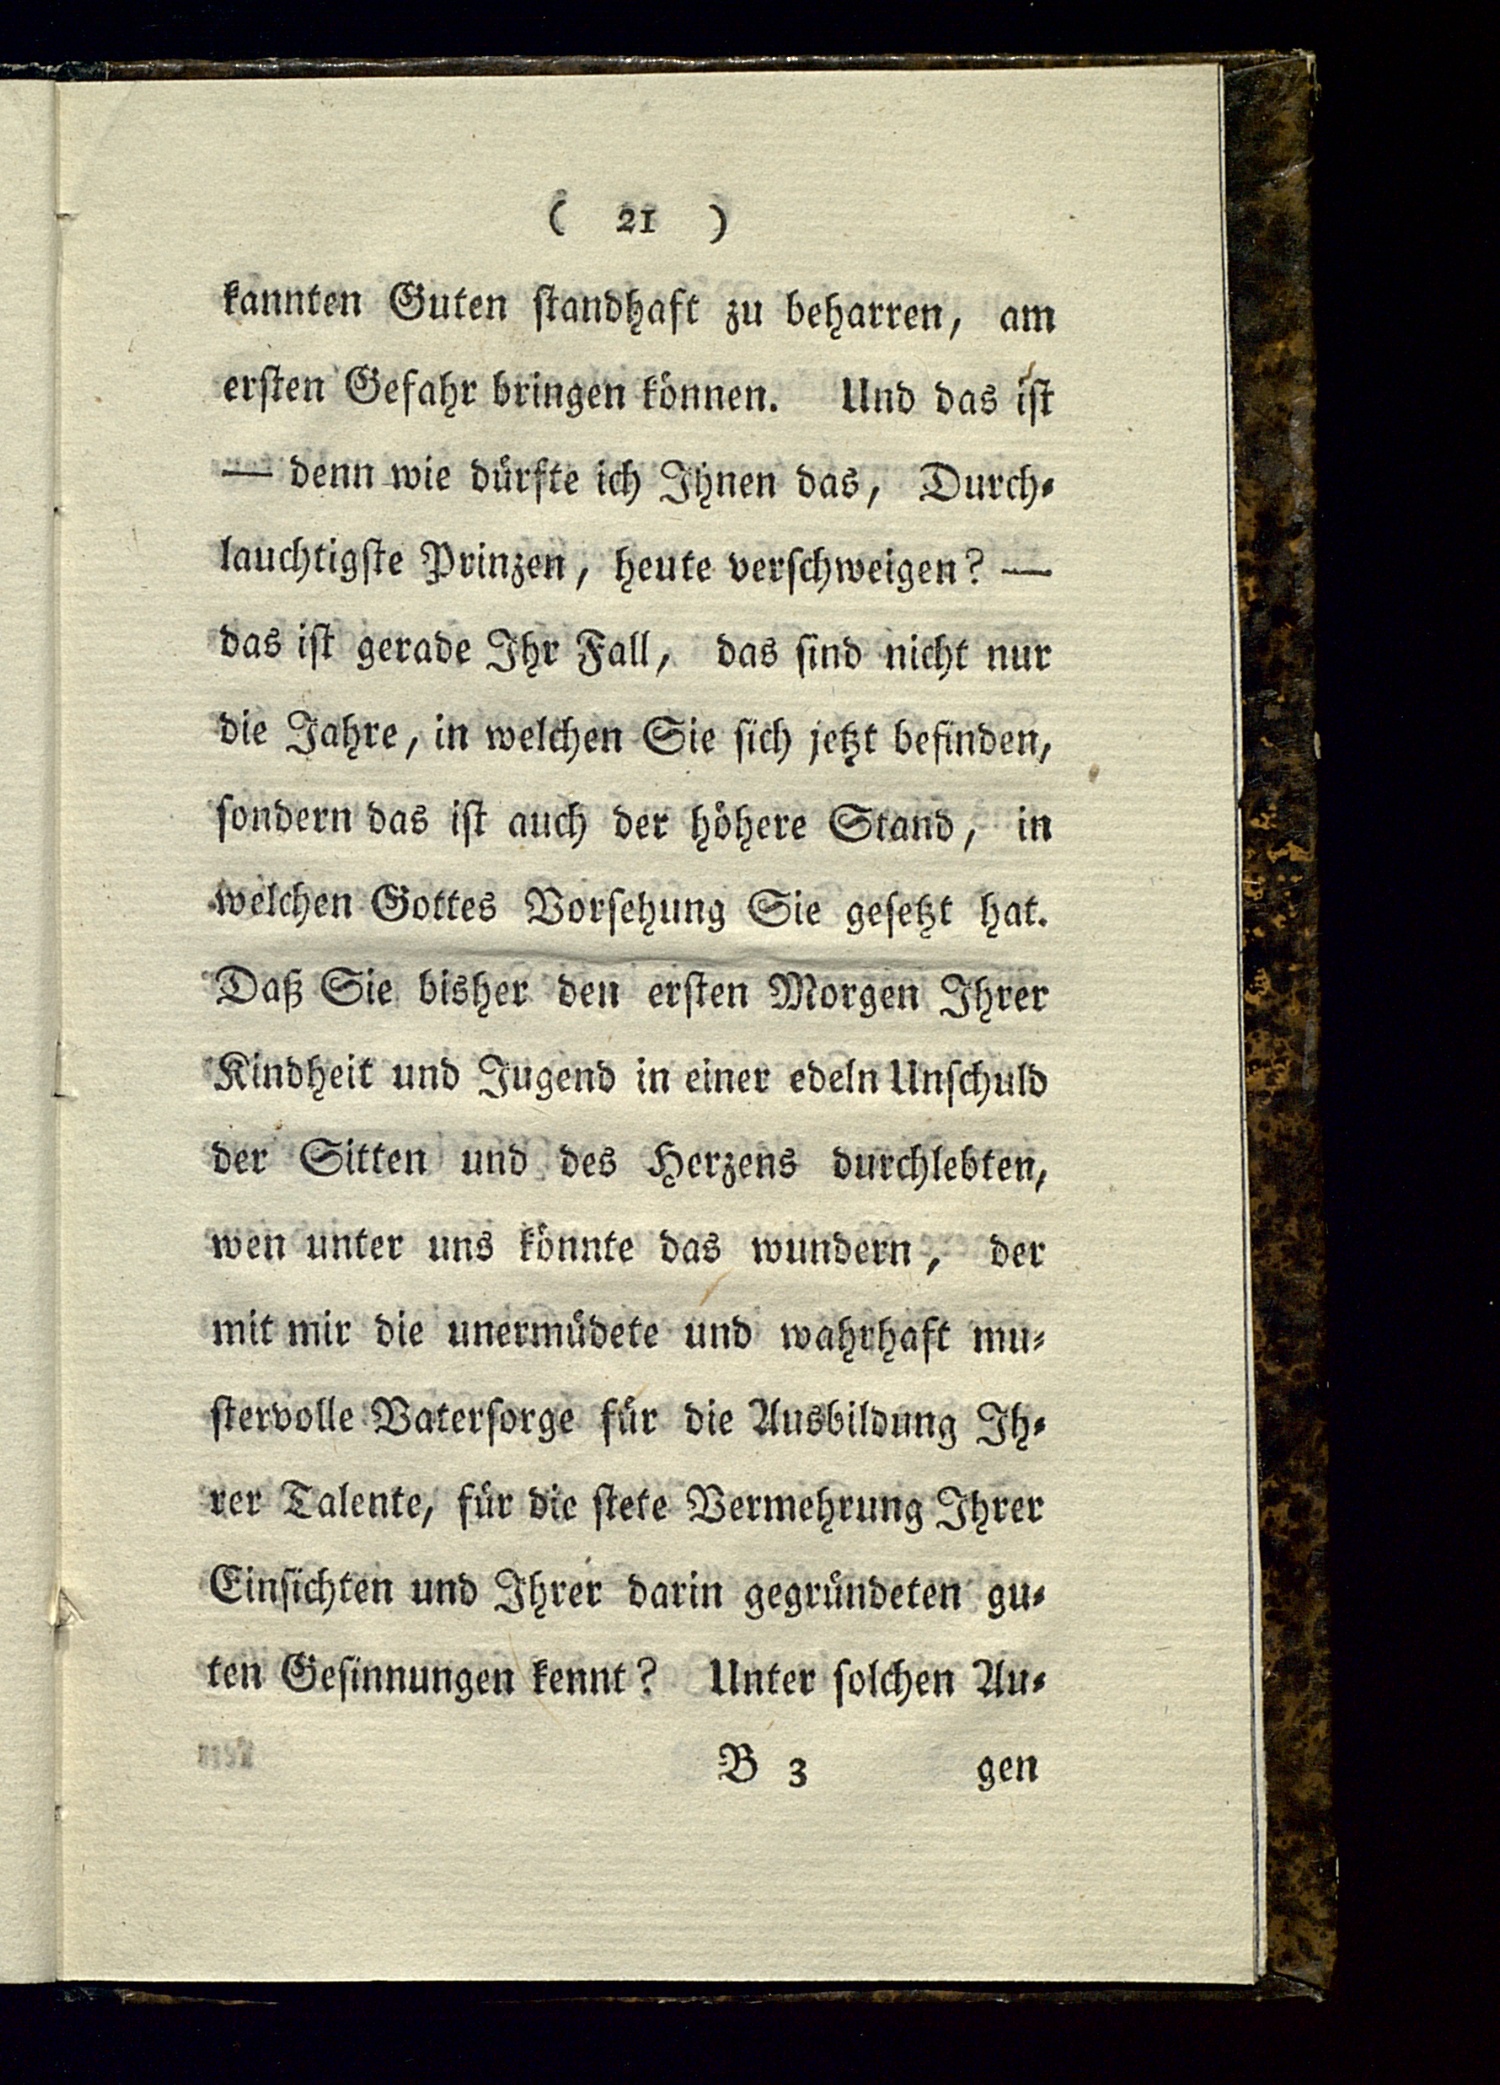 ( 21 )
kannten Guten ſtandhaft zu beharren, am
erſten Gefahr bringen können. Und das iſt
— denn wie dürfte ich Ihnen das, Durch⸗
lauchtigſte Prinzen, heute verſchweigen? —
das iſt gerade Ihr Fall, das ſind nicht nur
die Jahre, in welchen Sie ſich jetzt befinden,
ſondern das iſt auch der höhere Stand, in
welchen Gottes Vorſehung Sie geſetzt hat.
Daß Sie bisher den erſten Morgen Ihrer
Kindheit und Jugend in einer edeln Unſchuld
der Sitten und des Herzens durchlebten,
wen unter uns könnte das wundern, der
mit mir die unermüdete und wahrhaft mu⸗
ſtervolle Vaterſorge für die Ausbildung Ih⸗
rer Talente, für die ſtete Vermehrung Ihrer
Einſichten und Ihrer darin gegründeten gu⸗
ten Geſinnungen kennt? Unter ſolchen Au⸗
B 3 gen